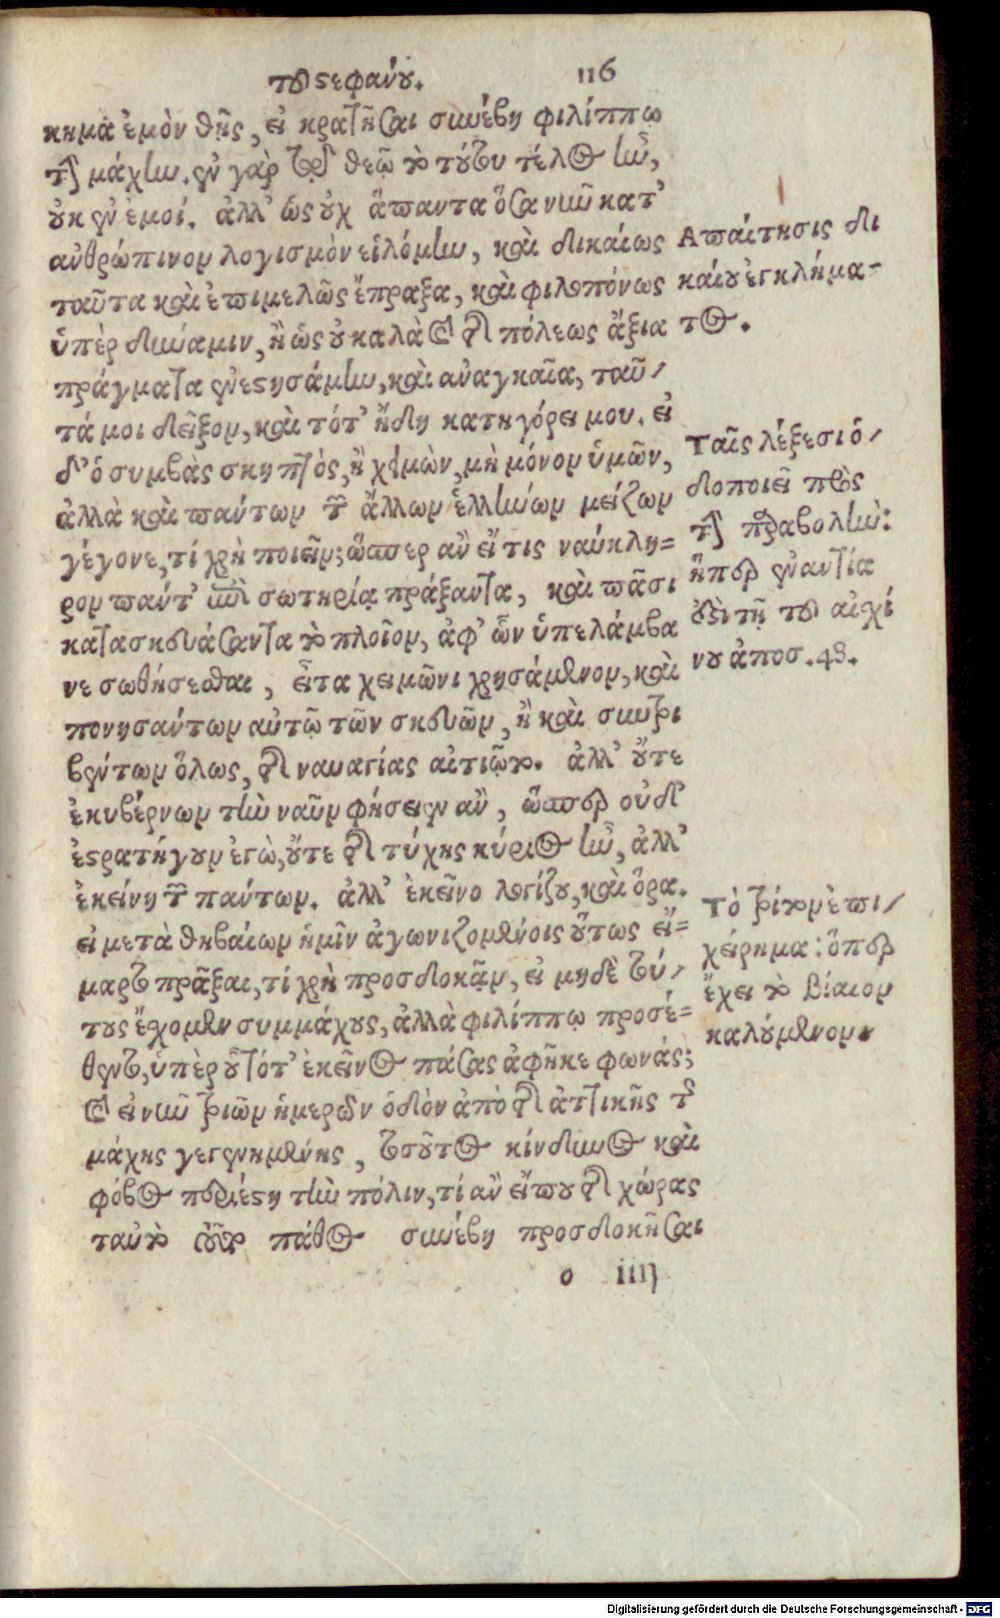 τοῦ στεφάνου. 116
κημα ἐμὸν θῇς, εἰ κρατῆσαι συνέβη φιλίππω
τῇ μάχῃ. ἐν γὰρ τῷ θεῷ τὸ τούτου τέλος ἦν,
οὐκ ἐν ἐμοί. ἀλλ' ὡς οὐχ ἅπαντα ὅσα νῦν κατ'
ἀνθρώπινον λογισμὸν εἱλόμην, καὶ δικαίως
ταῦτα καὶ ἐπιμελῶς ἔπραξα, καὶ φιλοπόνως
ὑπὲρ δύναμιν, ἢ ὡς οὐ καλὰ καὶ τῆς πόλεως ἄξια
πράγματα ἐνεστησάμην, καὶ ἀναγκαῖα, ταῦ/
τά μοι δεῖξον, καὶ τότ' ἤδη κατηγόρει μου. εἰ
δ' ὁ συμβὰς σκηπτὸς, ἢ χειμὼν, μὴ μόνον ὑμῶν,
ἀλλὰ καὶ πάντων τῶν ἄλλων ἑλλήνων μείζων
γέγονε, τί χρὴ ποιεῖν; ὥσπερ ἂν εἴ τις ναύκλη=
ρον πάντ' ἐπὶ σωτηρίᾳ πράξαντα, καὶ πᾶσι
κατασκευάσαντα τὸ πλοῖον, ἀφ' ὧν ὑπελάμβα
νε σωθήσεσθαι, εἶτα χειμῶνι χρησάμενον, καὶ
πονησάντων αὐτῷ τῶν σκευῶν, ἢ καὶ συντρι
βέντων ὅλως, τῆς ναυαγίας αἰτιῷτο. ἀλλ' οὔτε
ἐκυβέρνων τὴν ναῦν φήσειεν ἂν, ὥσπερ οὐδ'
ἐστρατήγουν ἐγὼ, οὔτε τῆς τύχης κύριος ἦν, ἀλλ'
ἐκείνη τῶν πάντων. ἀλλ' ἐκεῖνο λογίζου, καὶ ὅρα.
εἰ μετὰ θηβαίων ἡμῖν ἀγωνιζομένοις οὕτως εἵ=
μαρτο πρᾶξαι, τί χρὴ προσδοκᾷν, εἰ μηδὲ τού/
τους ἔχομεν συμμάχους, ἀλλὰ φιλίππῳ προσέ=
θεντο, ὑπὲρ οὗ τότ' ἐκεῖνος πάσας ἀφῆκε φωνάς;
καὶ εἰ νῦν τριῶν ἡμερῶν ὁδὸν ἀπὸ τῆς ἀττικῆς τῆς
μάχης γεγενημένης, τοσοῦτος κίνδυνος καὶ
φόβος περιέστη τὴν πόλιν, τί ἂν εἴ που τῆς χώρας
ταυτὸ τοῦτο πάθος συνέβη προσδοκῆσαι
ο iiij
Απαίτησις δι
καίου ἐγκλήμα-
τος.
Ταῖς λέξεσι ὁ/
δοποιεῖ πρὸς
τὴν παραβολὴν:
ἥπερ ἐναντία
ἐστὶ τῇ τοῦ αἰχί
νου ἀποσ. 48.
Τὸ τρίτον ἐπι/
χείρημα: ὅπερ
ἔχει τὸ βίαιον
καλούμενον.
Digitalisierung gefördert durch die Deutsche Forschungsgemeinschaft - DFG